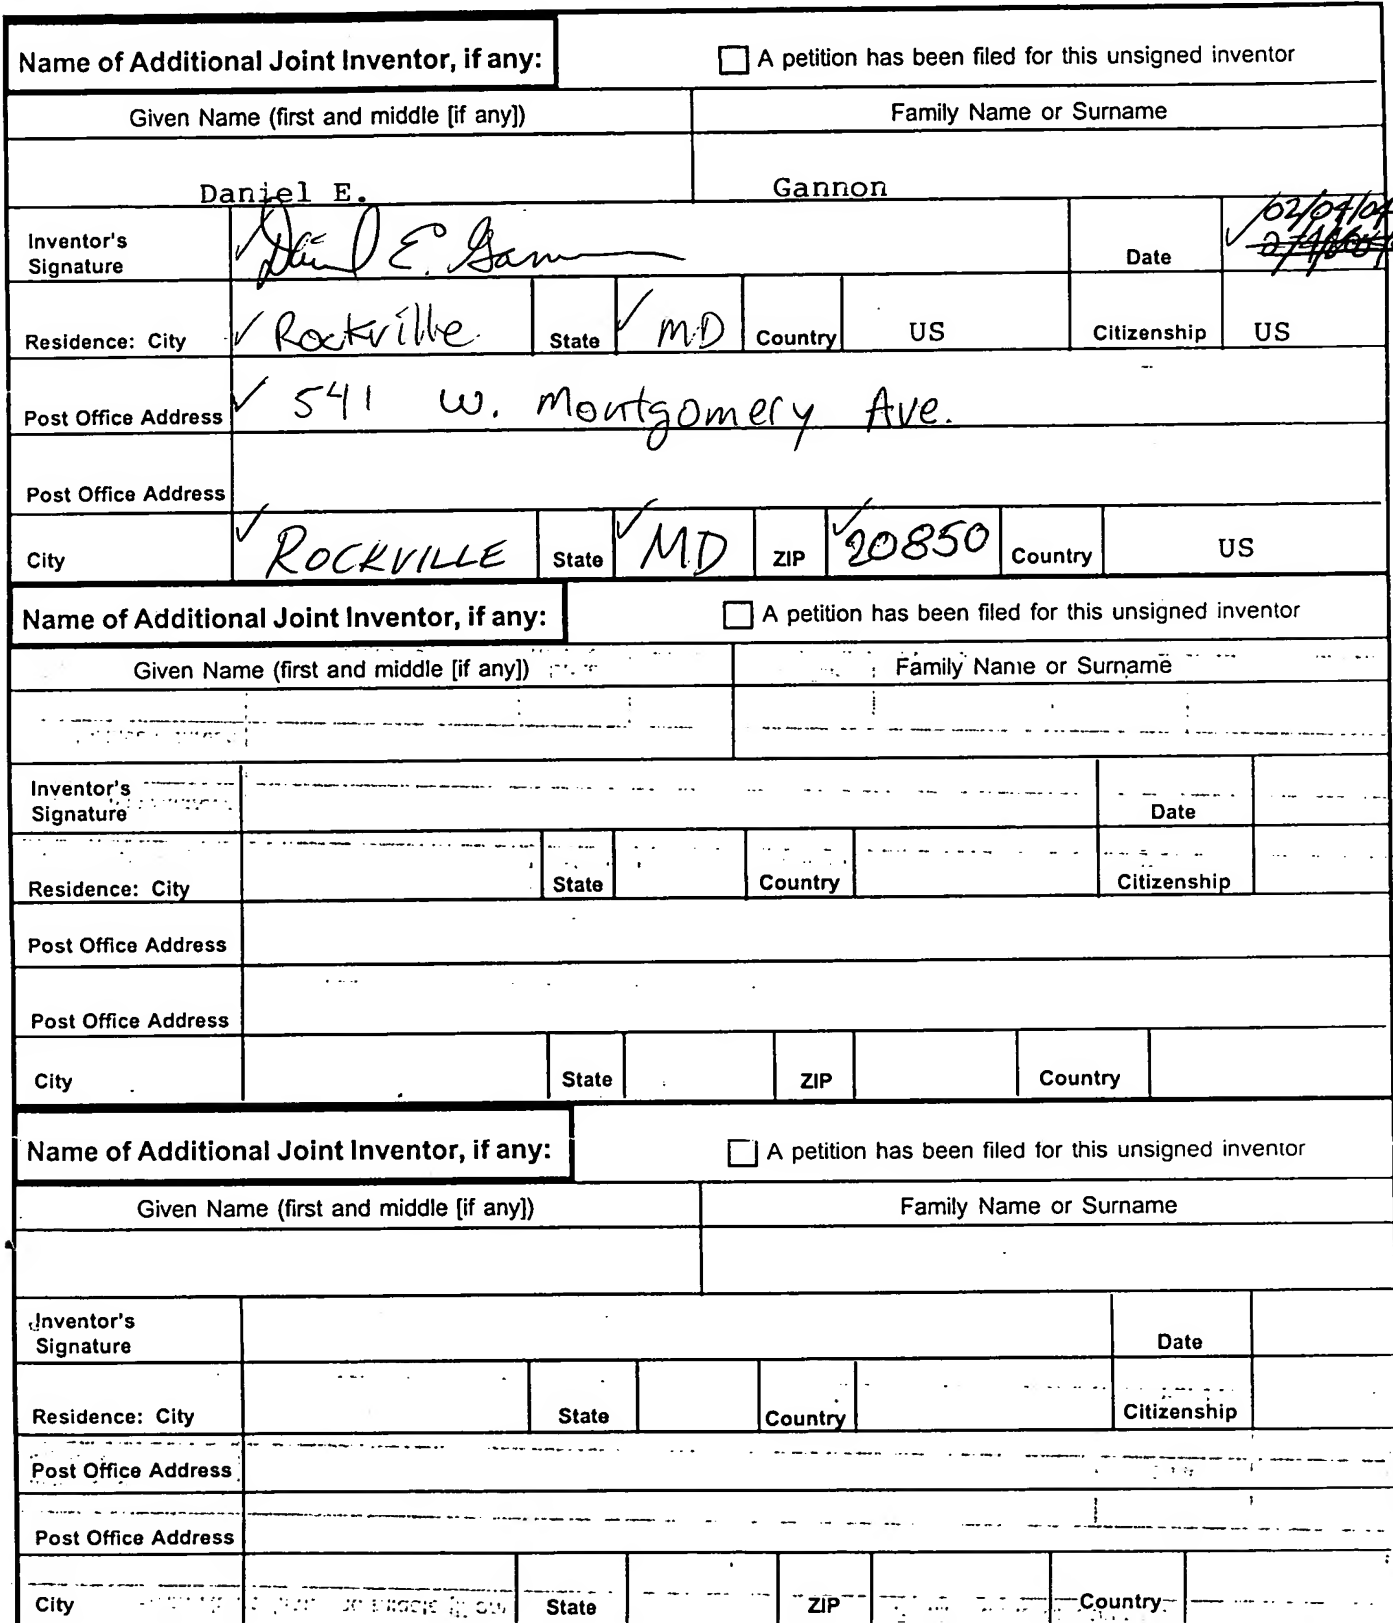 Name of Additional Joint Inventor, if any: A petition has been filed for this unsigned inventor
Given Name (first and middle [if any]) Family Name or Surname
Daniel E. Gannon
Inventor's Signature Daniel E. Gannon Date 02/04/04
Residence: City Rockville State MD Country US Citizenship US
Post Office Address 541 W. Montgomery Ave.
Post Office Address
City ROCKVILLE State MD ZIP 20850 Country US
Name of Additional Joint Inventor, if any: A petition has been filed for this unsigned inventor
Given Name (first and middle [if any]) Family Name or Surname
Inventor's Signature Date
Residence: City State Country Citizenship
Post Office Address
Post Office Address
City State ZIP Country
Name of Additional Joint Inventor, if any: A petition has been filed for this unsigned inventor
Given Name (first and middle [if any]) Family Name or Surname
Inventor's Signature Date
Residence: City State Country Citizenship
Post Office Address
Post Office Address
City State ZIP Country